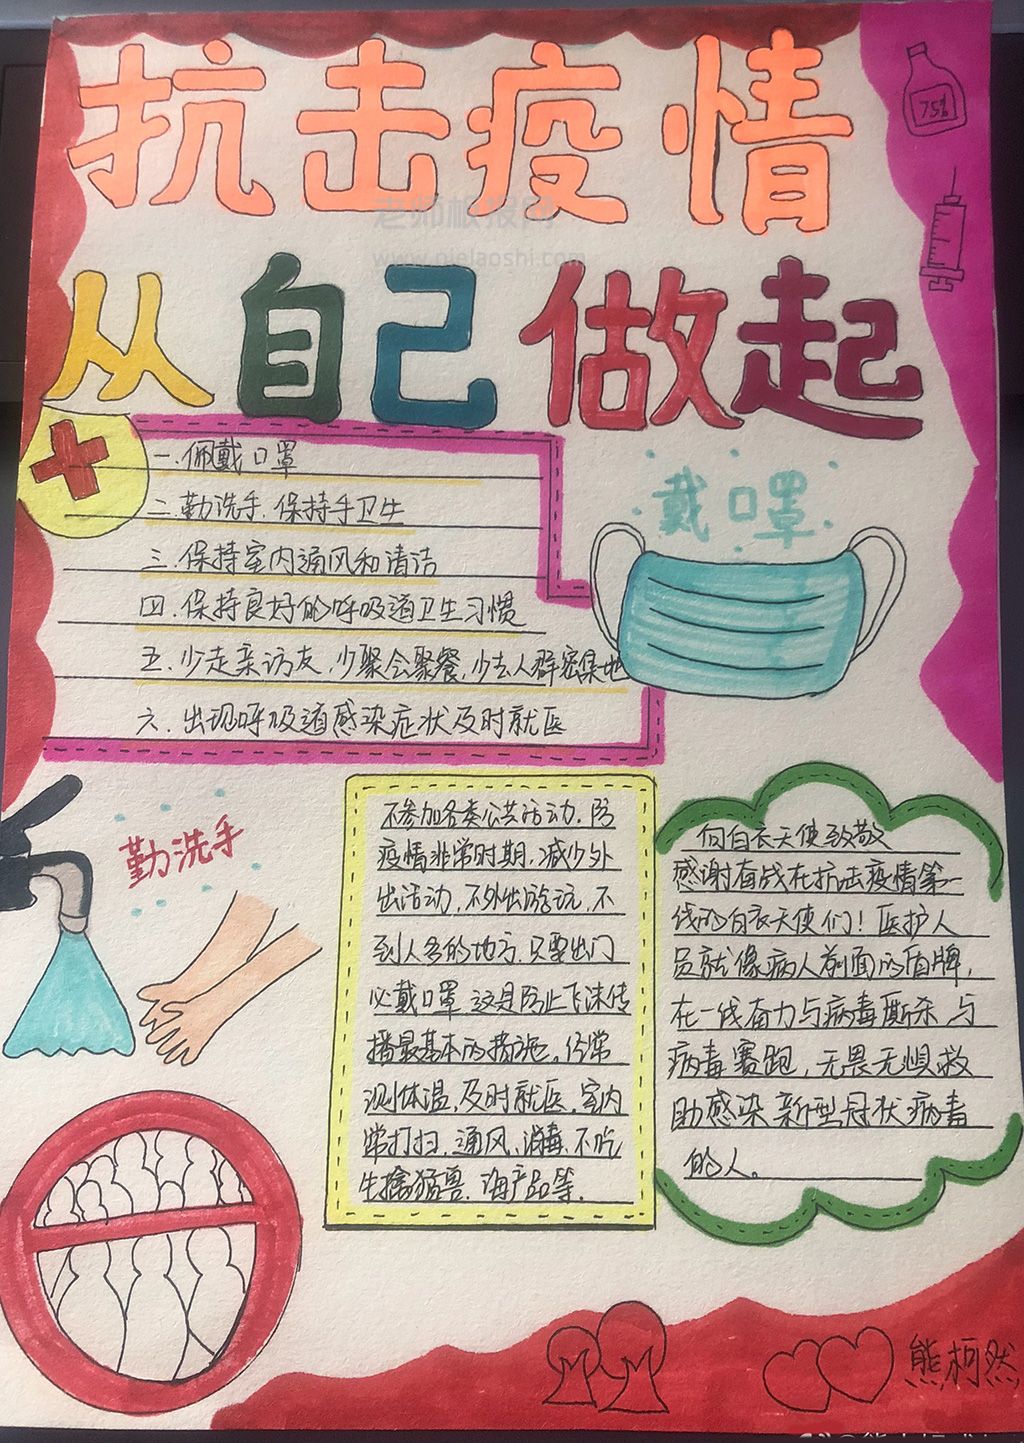 抗击疫情
75%
老师板报网
从自己做起
一.佩戴口罩
二.勤洗手.保持手卫生
三.保持室内通风和清洁
四.保持良好的呼吸道卫生习惯
五.少走亲访友,少聚会聚餐,少去人群密集地
六.出现呼吸道感染症状及时就医
戴口罩
勤洗手
不参加各类公共活动.防
疫情非常时期.减少外
出活动.不外出游玩.不
到人多的地方.只要出门
必戴口罩.这是防止飞沫传
播最基本的措施。经常
测体温.及时就医.室内
常打扫.通风.消毒.不吃
生禽猛兽.海产品等.
向白衣天使致敬
感谢奋战在抗击疫情第一
线的白衣天使们!医护人
员就像病人前面的盾牌,
在一线奋力与病毒厮杀.与
病毒赛跑,无畏无惧救
助感染新型冠状病毒
的人。
熊柯然